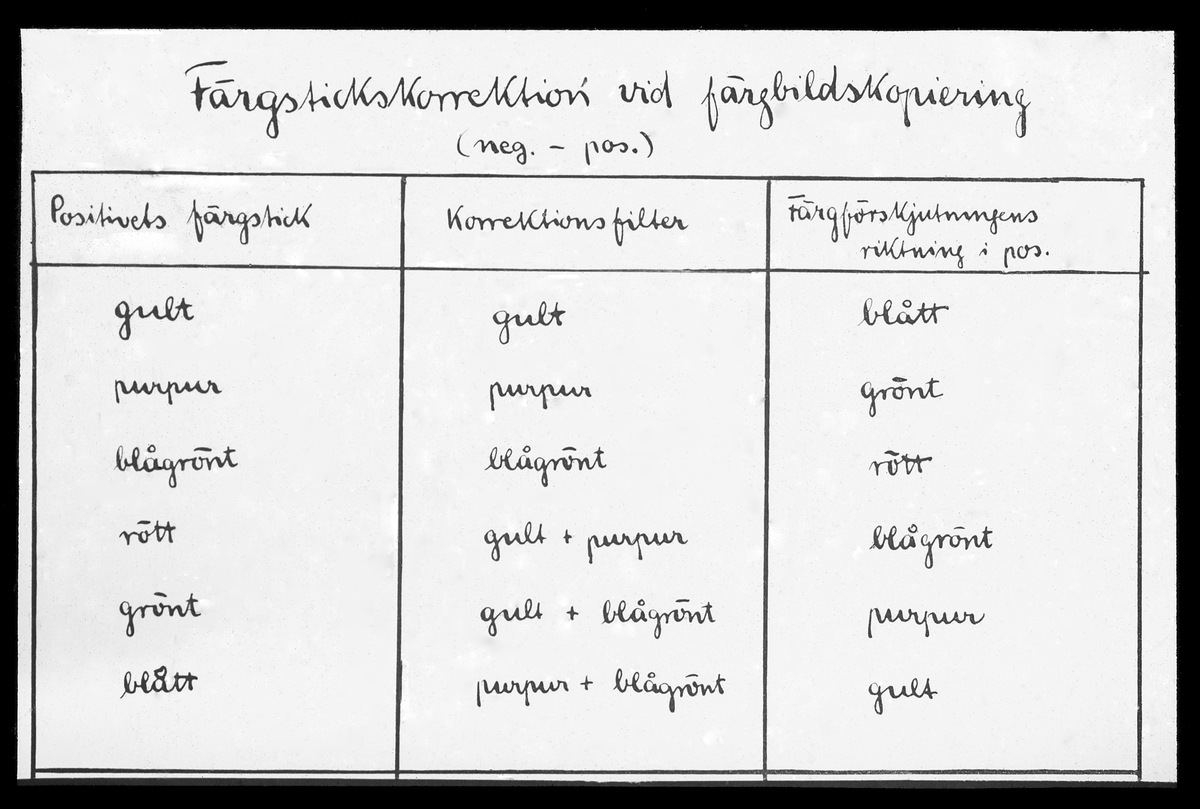 Färgstickskorrektion vid färgbildskopiering
(neg. - pos.)
Positivets färgstick Korrektionsfilter Färgförskjutningens
riktning i pos.
gult gult blått
purpur purpur grönt
blågrönt blågrönt rött
rött gult + purpur blågrönt
grönt gult + blågrönt purpur
blått purpur + blågrönt gult